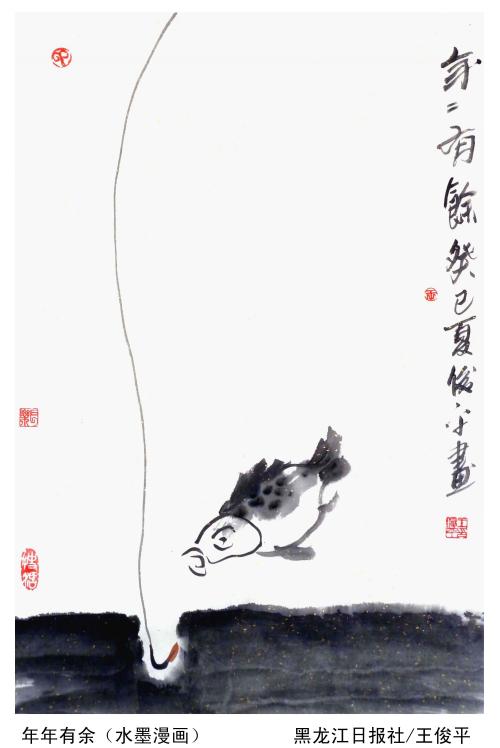 年〻有餘癸巳夏俊平画
年年有余（水墨漫画） 黑龙江日报社/王俊平